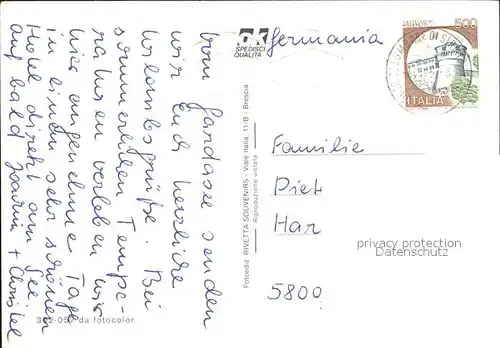 vom Gardasee senden
wir Euch herzliche
Urlaubsgrüße. Bei
sommerlichen Tempe-
raturen verleben wir
hier angenehme Tage
in einem sehr schönen
Hotel direkt am See
auf bald Joavim + Christel
ok
SPEDISCI
QUALITÀ
Germania
500
ITALIA
Familie
Piet
Har
privacy protection
Datenschutz
5800
Fotoediz. RIVETTA SOUVENIRS - Viale Italia, 11/B - Brescia
Riproduzione vietata
da fotocolor